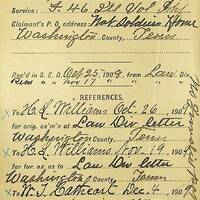 Service: F. 46 Ill Vol Inf
Claimant's P. O. address Nat Soldiers Home
Washington County, Tenn
Rec'd in S. E. D. Oct 25, 1909, from Law Div.
REFERENCES.
To H. L. Williams Oct. 26, 1909
for orig. ex'm'n as Law Div. letter
Washington County, Tenn
To H. L. Williams Nov. 19, 1909
for ex. as to Law Div letter
Washington County, Tenn
To W. T. Cathcart Dec. 4, 1909